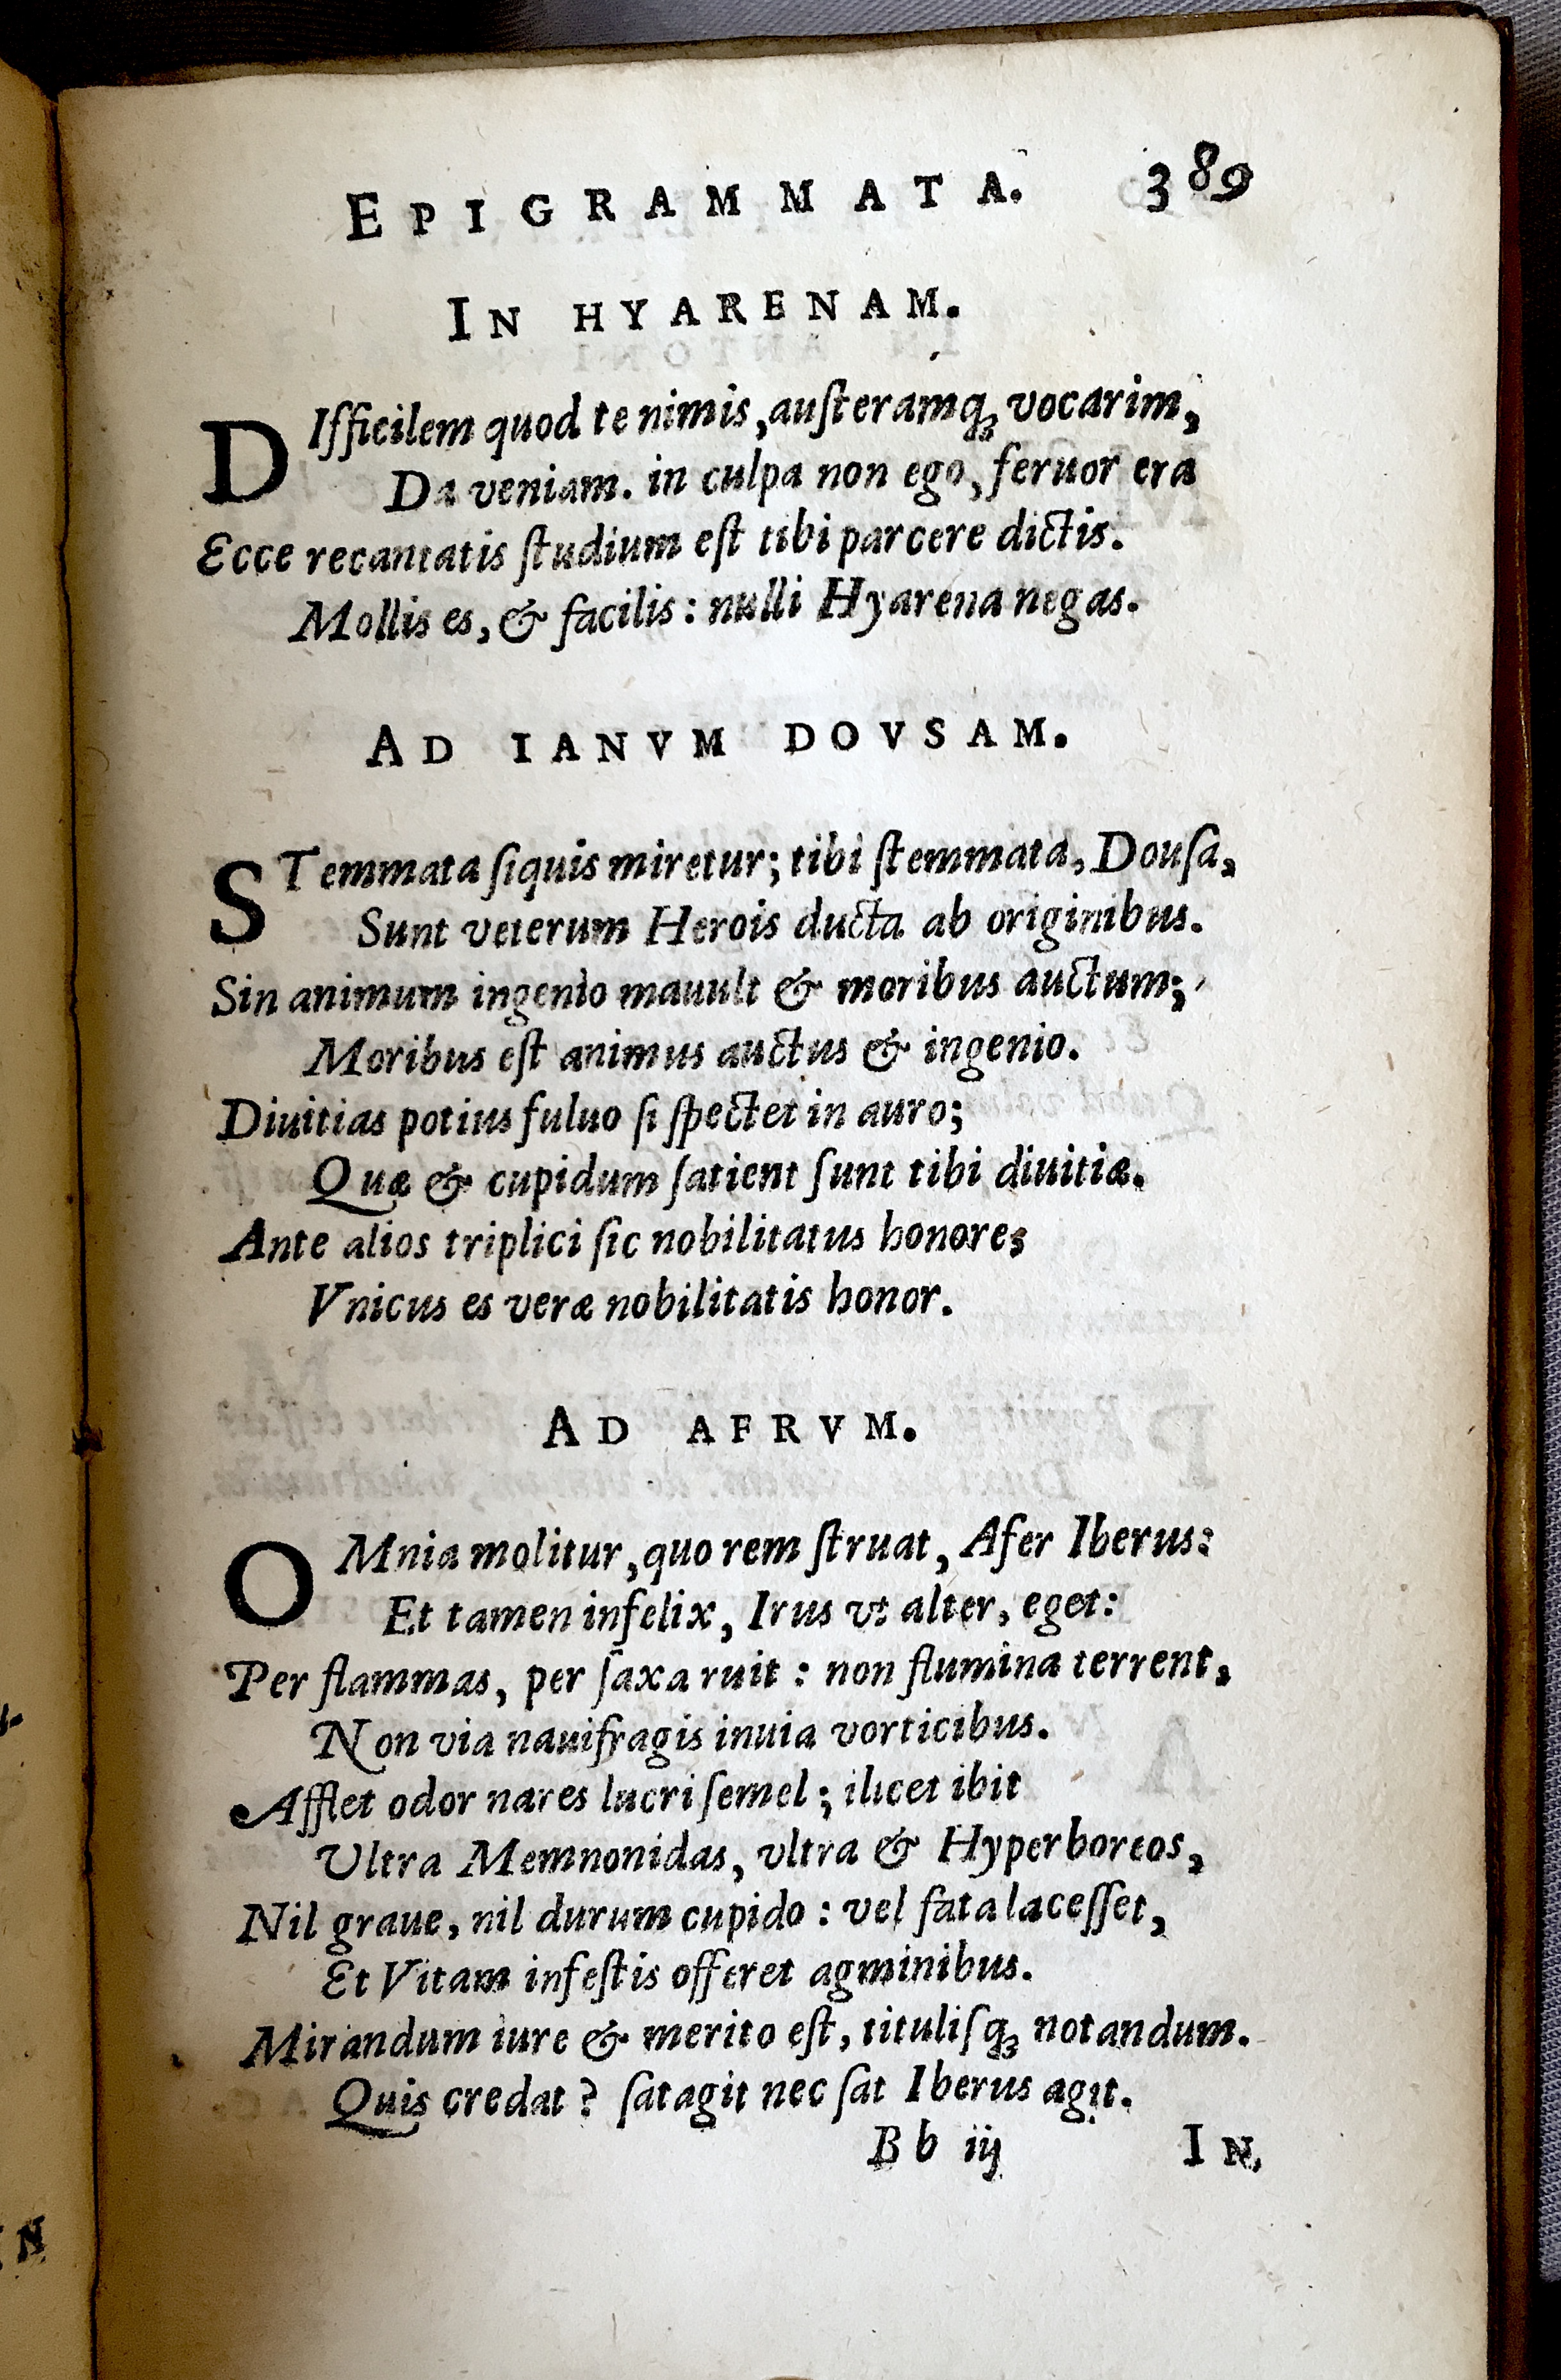 EPIGRAMMATA. 389
IN HYARENAM.
DIfficilem quod te nimis, auſteramq́ꝫ vocarim,
Da veniam. in culpa non ego, feruor era
Ecce recantatis ſtudium eſt tibi parcere dictis.
Mollis es, & facilis: nulli Hyarena negas.
AD IANVM DOVSAM.
STemmata ſiquis miretur; tibi ſtemmata, Douſa,
Sunt veterum Herois ducta ab originibus.
Sin animum ingenio mauult & moribus auctum;
Moribus eſt animus auctus & ingenio.
Diuitias potius fuluo ſi ſpectet in auro;
Quæ & cupidum ſatient ſunt tibi diuitiæ.
Ante alios triplici ſic nobilitatus honore;
Vnicus es veræ nobilitatis honor.
AD AFRVM.
OMnia molitur, quo rem ſtruat, Afer Iberus:
Et tamen infelix, Irus vt alter, eget:
Per flammas, per ſaxa ruit: non flumina terrent,
Non via nauifragis inuia vorticibus.
Afflet odor nares lucri ſemel; ilicet ibit
Ultra Memnonidas, vltra & Hyperboreos,
Nil graue, nil durum cupido: vel fata laceſſet,
Et Vitam infeſtis offeret agminibus.
Mirandum iure & merito eſt, tituliſqꝫ notandum.
Quis credat? ſatagit nec ſat Iberus agit.
Bb iij IN
N